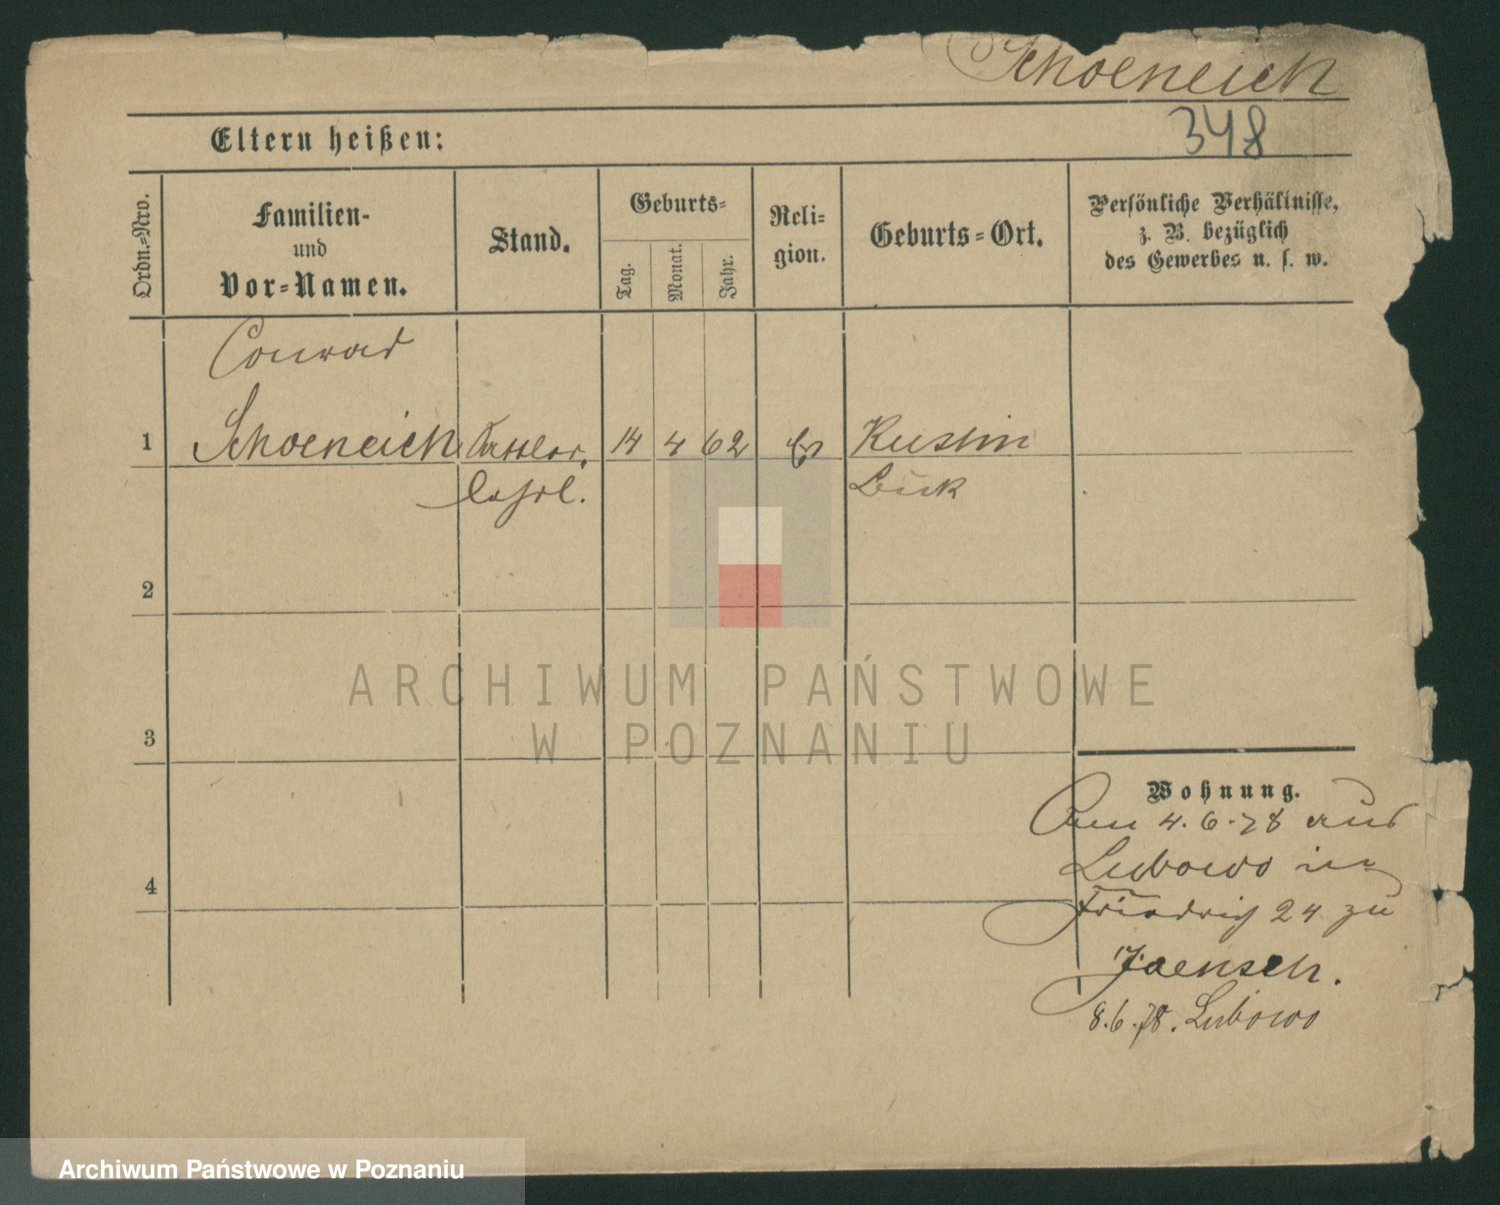 Schoeneich
348
Eltern heißen:
Ordn.=Nro.
Familien-
und
Vor=Namen.
Stand.
Geburts=
Tag.
Monat.
Jahr.
Reli=
gion.
Geburts=Ort.
Persönliche Verhältnisse,
z. B. bezüglich
des Gewerbes u. s. w.
Conrad
1 Schoeneich Sattler, 14 4 62 Ev Kuslin
Lehrl. Buk
2
3
4
Wohnung.
Am 4.6.78 aus
Lubowo in
Friedrich 24 zu
Jaensch.
8.6.78. Lubowo
ARCHIWUM PAŃSTWOWE
W POZNANIU
Archiwum Państwowe w Poznaniu